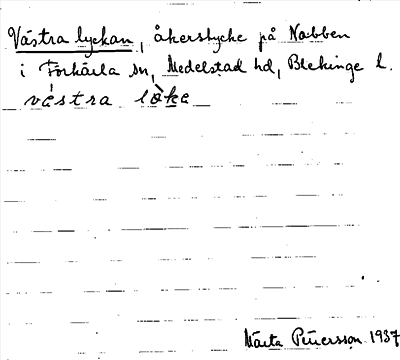 Västra lyckan, åkerstycke på Nabben
i Förkärla sn, Medelstad hd, Blekinge l.
véstra lòke
Märta Petersson 1937